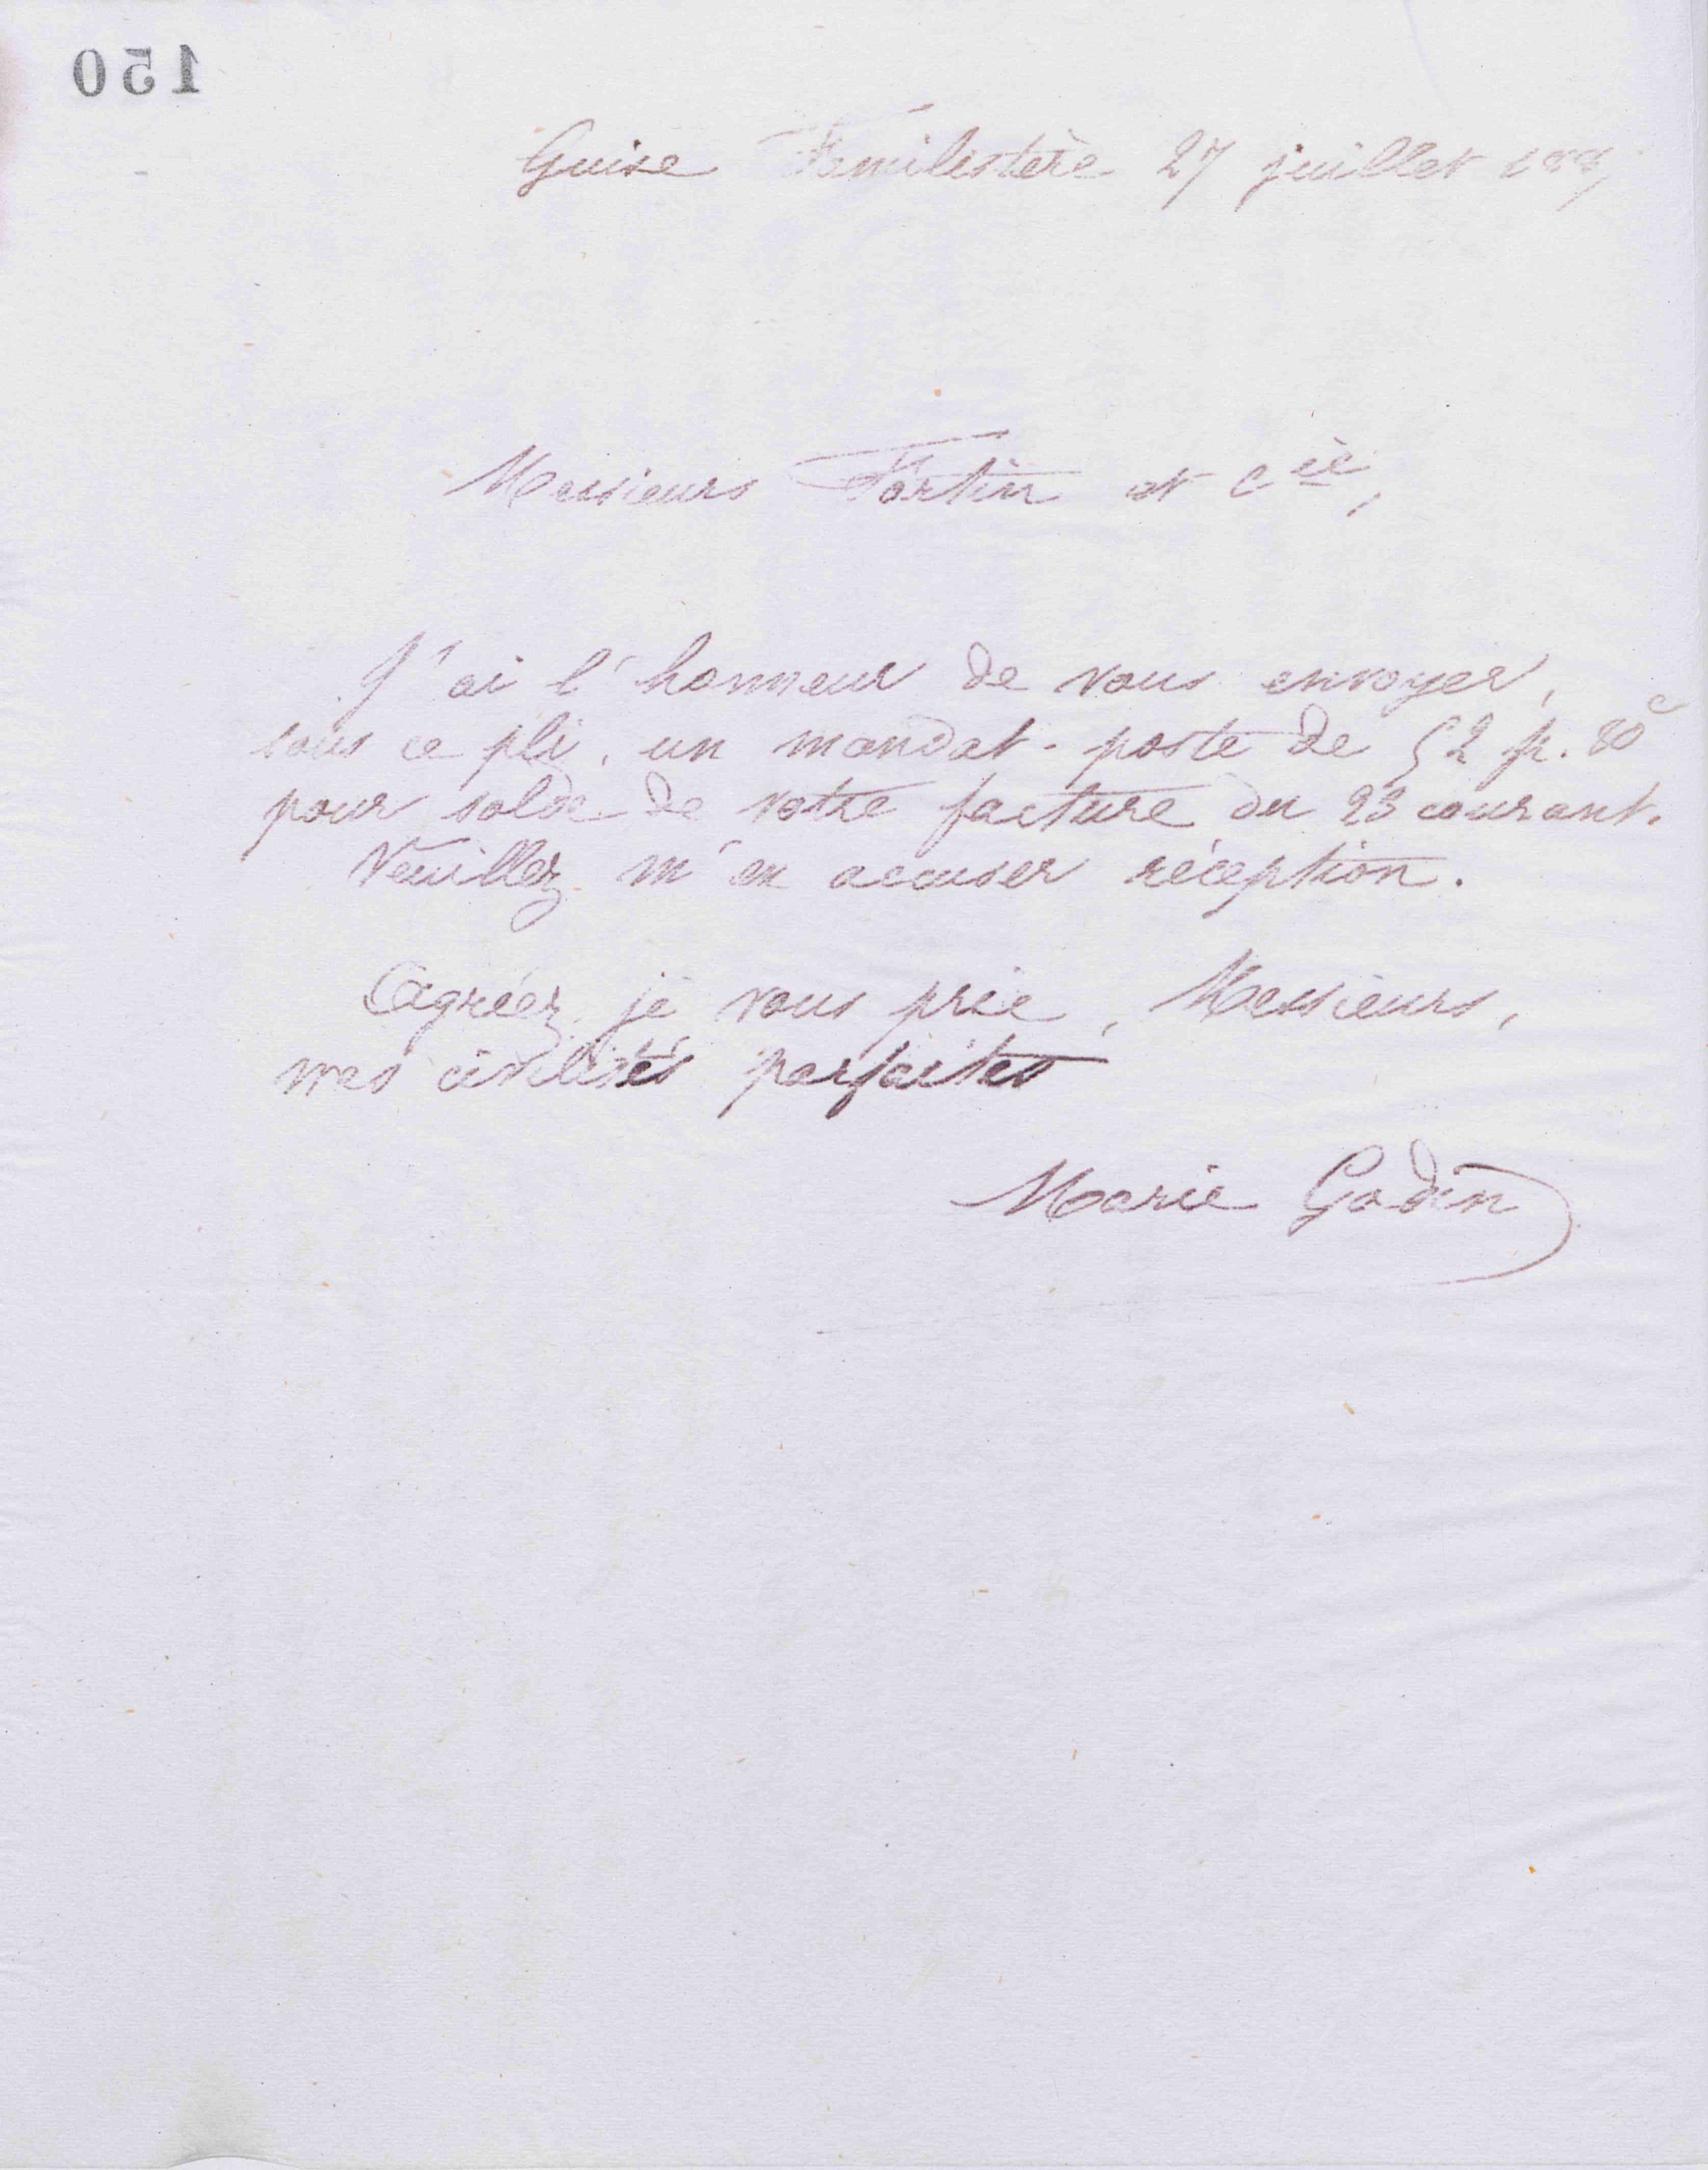 150
Guise Familistère 27 juillet 188
Messieurs Fortin et Cie,
J'ai l'honneur de vous envoyer,
sous ce pli, un mandat-poste de 52 fr. 80c
pour solde de votre facture du 23 courant.
Veuillez m'en accuser réception.
Agréez, je vous prie, Messieurs,
mes civilités parfaites
Marie Godin